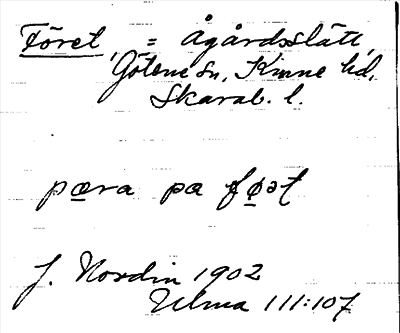 Föret, = Ågårdsslätt,
Götene sn, Kinne hd,
Skarab. l.
pæra pa føət
J. Nordin 1902
Ulma 111:107